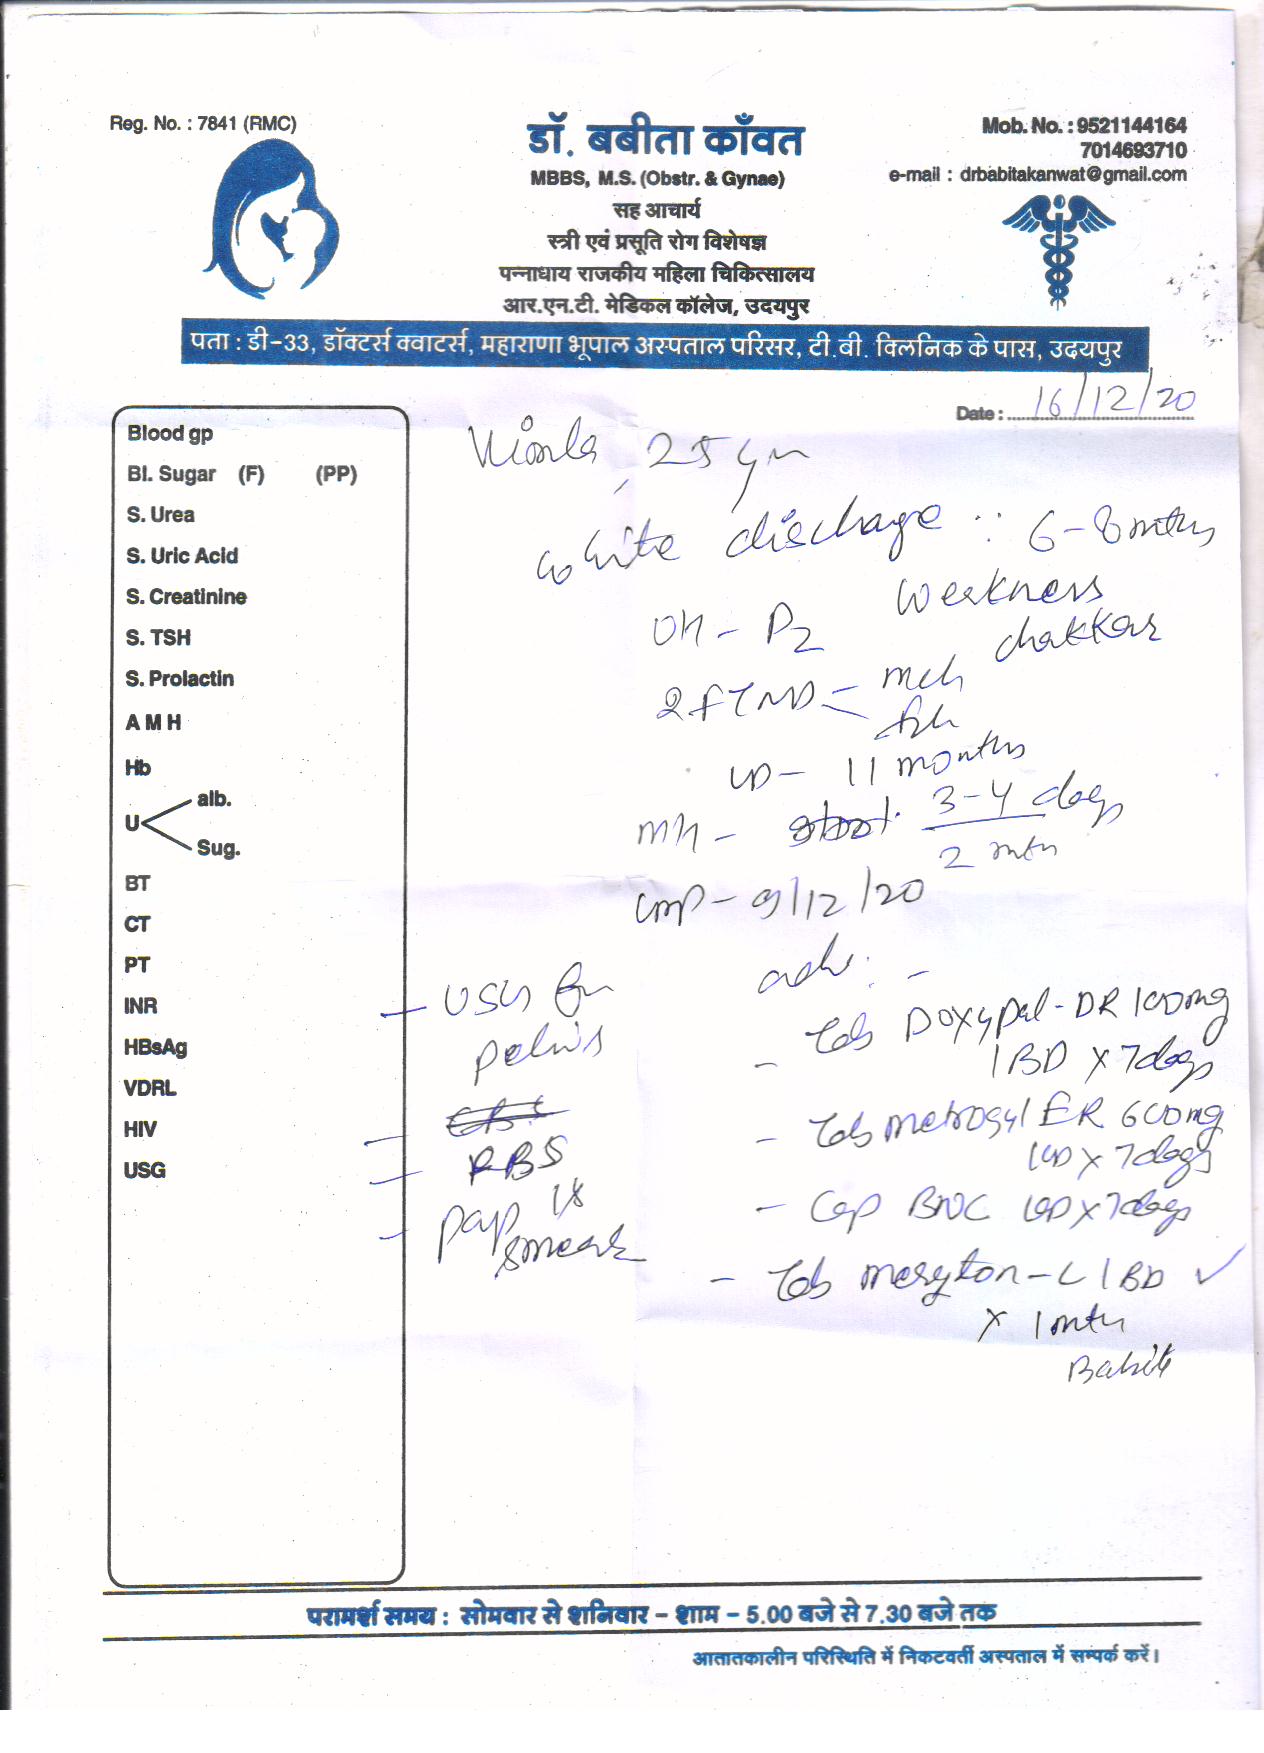 Reg. No. : 7841 (RMC)
डॉ. बबीता काँवत
MBBS, M.S. (Obstr. & Gynae)
सह आचार्य
स्त्री एवं प्रसूति रोग विशेषज्ञ
पन्नाधाय राजकीय महिला चिकित्सालय
आर.एन.टी. मेडिकल कॉलेज, उदयपुर
Mob. No. : 9521144164
7014693710
e-mail : drbabitakanwat@gmail.com
पता : डी-33, डॉक्टर्स क्वाटर्स, महाराणा भूपाल अस्पताल परिसर, टी.बी. क्लिनिक के पास, उदयपुर
Date : 16/12/20
Blood gp
Bl. Sugar (F) (PP)
S. Urea
S. Uric Acid
S. Creatinine
S. TSH
S. Prolactin
A M H
Hb
U alb.
Sug.
BT
CT
PT
INR
HBsAg
VDRL
HIV
USG
25
white discharge 6-8 mths
weakness
chakkar
OH - P2
2 FTND - mch
fch
LD - 11 months
MH - 3-4 days
2 mth
LMP - 9/12/20
adv. -
- USG for
pelvis
- RBS
- pap smear
- Tab Doxypal-DR 100mg
1 BD x 7 days
- Tab Metrogyl ER 600mg
1 OD x 7 days
- Cap BNC 1 OD x 7 days
- Tab -L 1 BD ✓
x 1 mth
परामर्श समय : सोमवार से शनिवार – शाम – 5.00 बजे से 7.30 बजे तक
आतातकालीन परिस्थिति में निकटवर्ती अस्पताल में सम्पर्क करें।